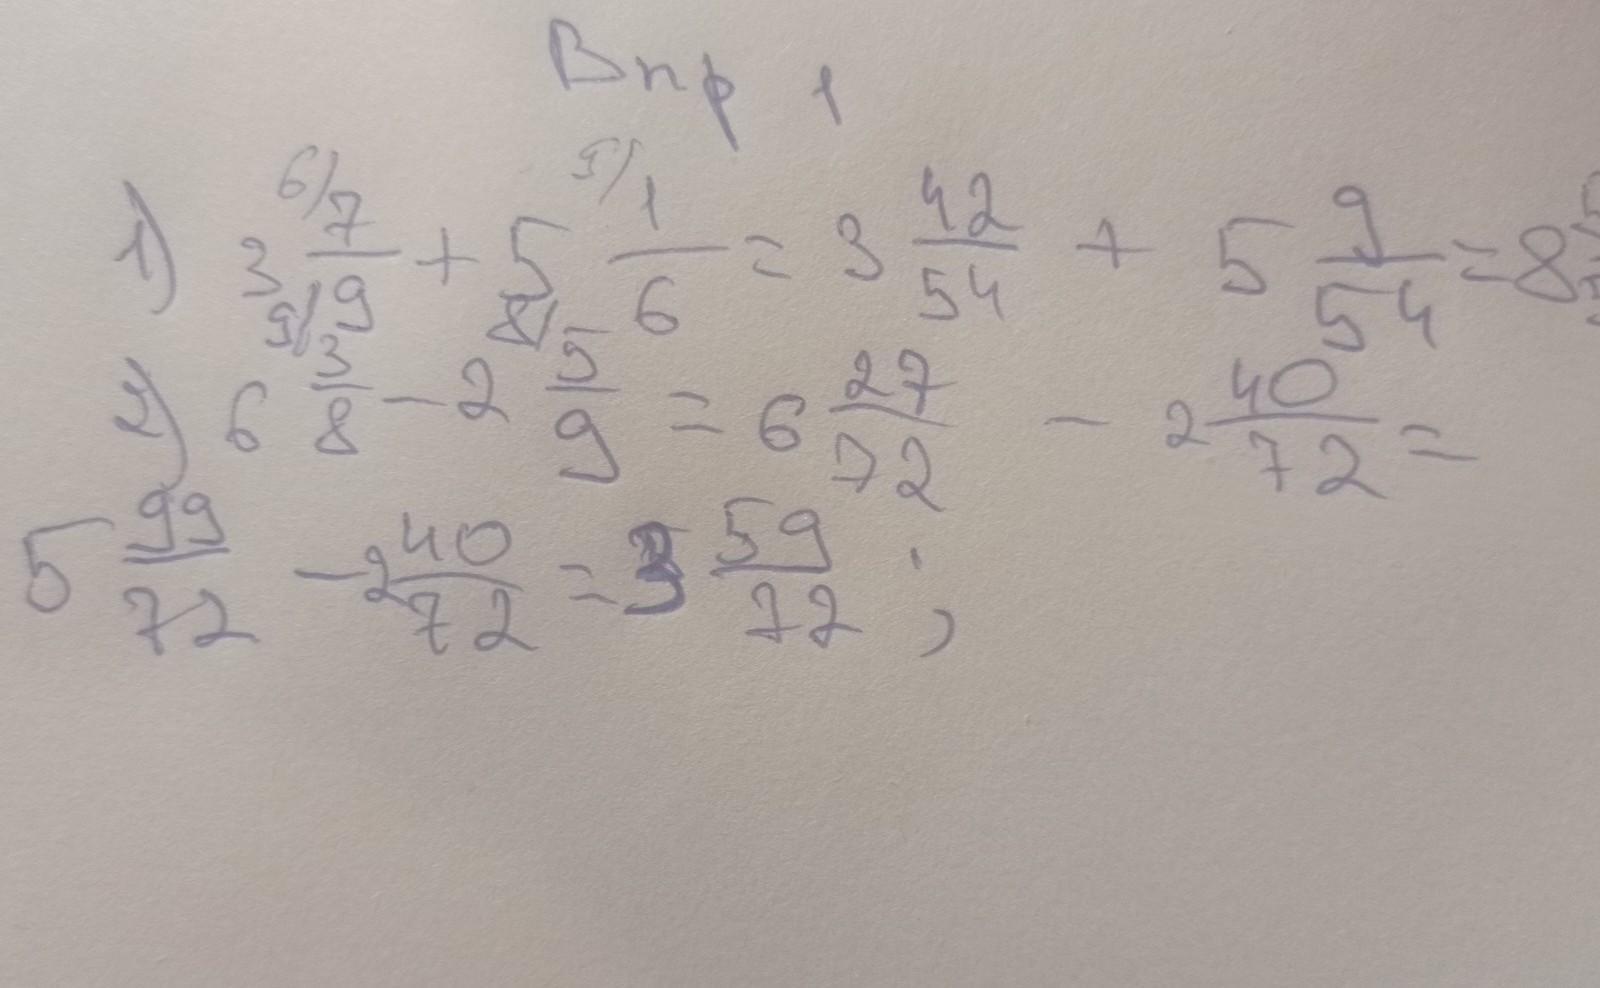 Впр 1
1) 3 6/ 7/9 + 5 9/ 1/6 = 3 42/54 + 5 9/54 = 8
2) 6 9/ 3/8 - 2 8/ 5/9 = 6 27/72 - 2 40/72 =
5 99/72 - 2 40/72 = 3 59/72 ;